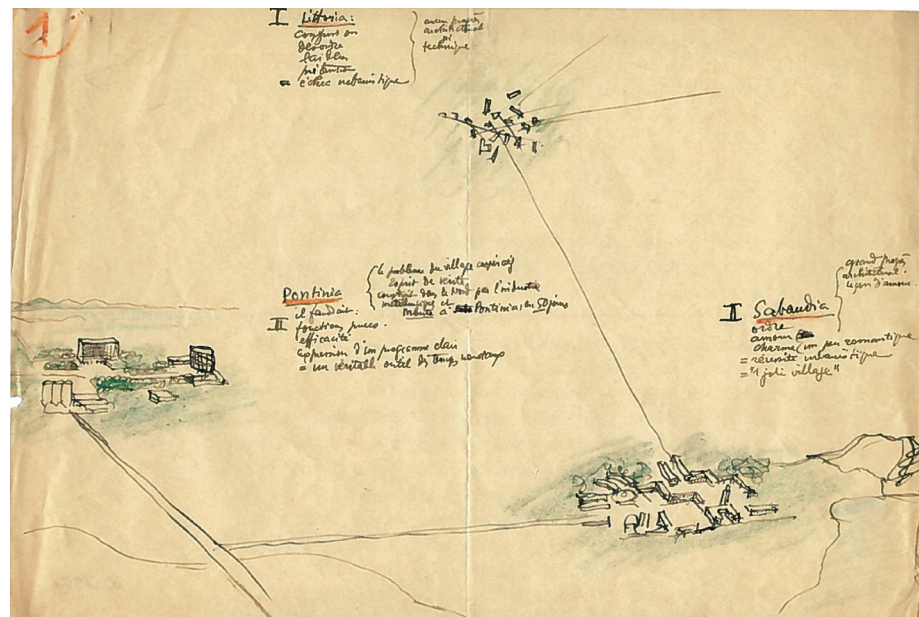 1
I Littoria:
confusion
désordre
laideur
prétention
= échec urbanistique
aucun progrès
architectural
ni
technique
Pontinia
il faudrait:
III fonctions pures.
efficacité
expression d'un programme clair
= un véritable outil des temps nouveaux
le problème du village coopératif
esprit de vérité
construit dans le Nord par l'industrie
métallurgique et
monté à Pontinia en 50 jours
II Sabaudia
ordre
amour
charme (un peu romantique
= réussite urbanistique
= "1 joli village"
grand progrès
architectural.
leçon d'amour.